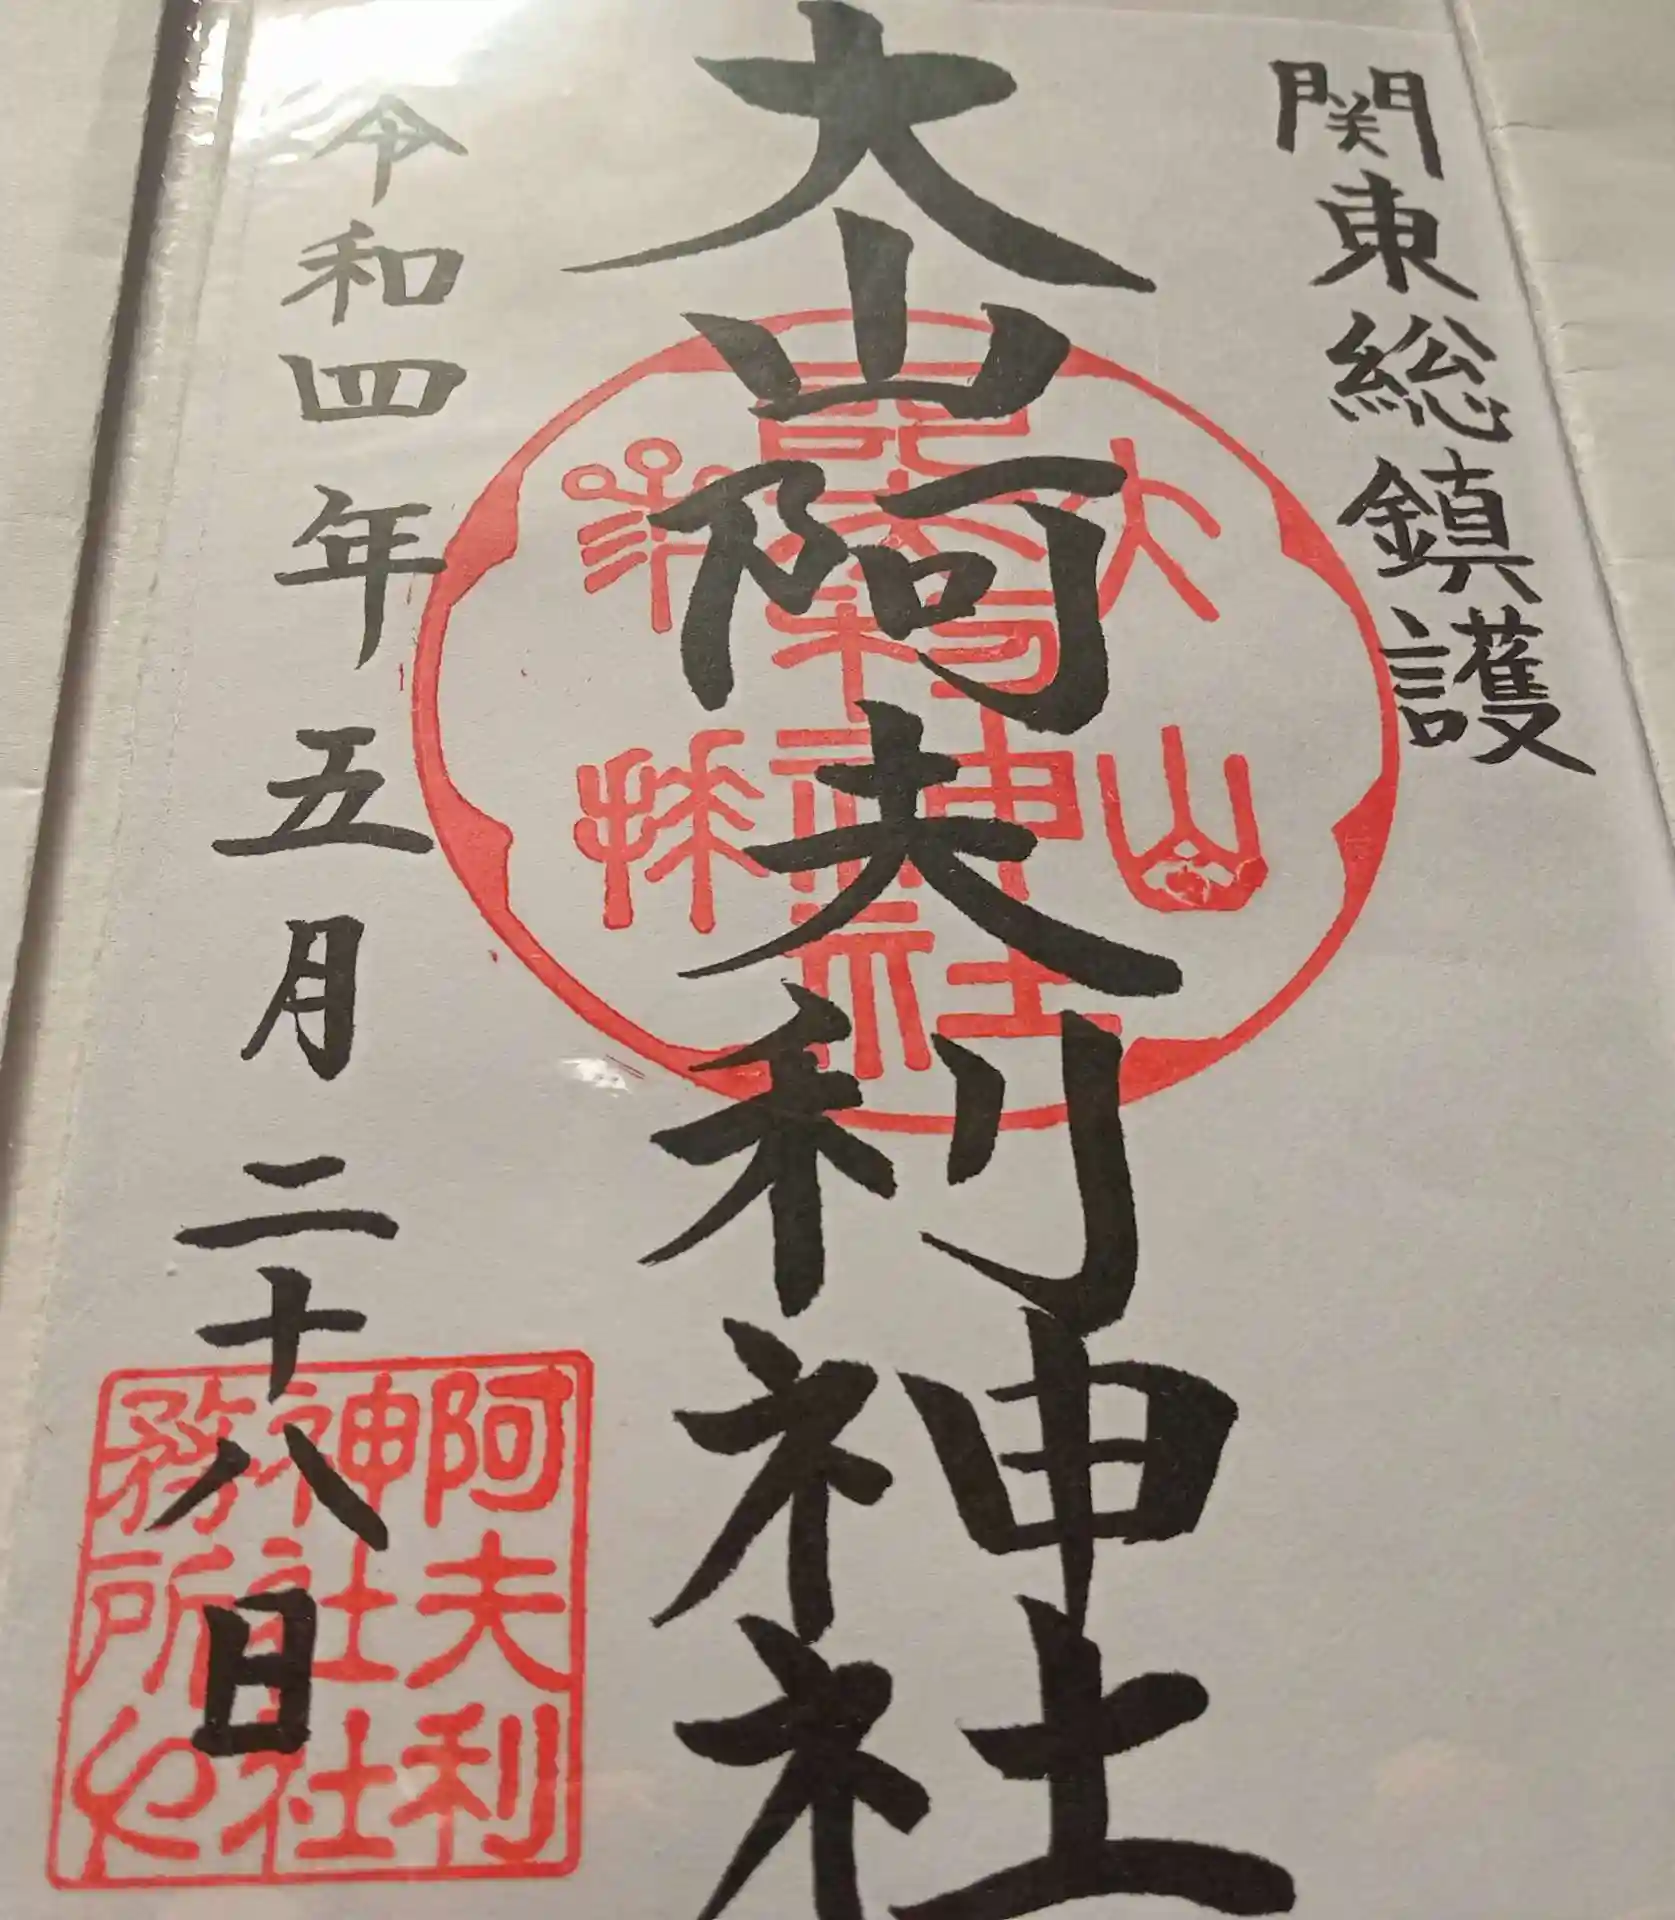 関東総鎮護
大山阿夫利神社
令和四年五月二十八日
大山
阿夫利
神社社
務所也